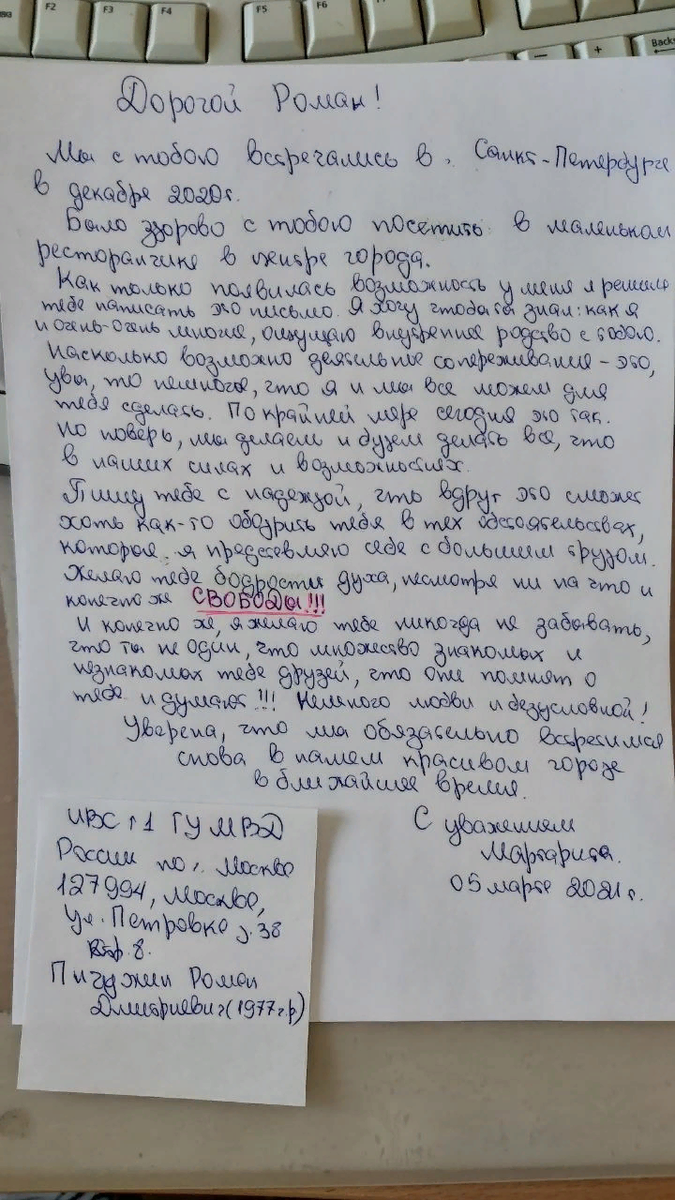 F2
F3
F4
F5
F6
F7
F8
+
Backs
Дорогой Роман!
Мы с тобою встречались в г. Санкт-Петербурге
в декабре 2020г.
Было здорово с тобою посетить в маленьком
ресторанчике в центре города.
Как только появилась возможность у меня я решила
тебе написать это письмо. Я хочу чтобы ты знал: как я
и очень-очень многие, ощущаю внутренние родство с тобою.
Насколько возможно деятельное сопереживание - это,
увы, то немногое, что я и мы все можем для
тебя сделать. По крайней мере сегодня это так.
Но поверь, мы делаем и будем делать все, что
в наших силах и возможностях.
Пишу тебе с надеждой, что вдруг это сможет
хоть как-то ободрить тебя в тех обстоятельствах,
которые я представляю себе с большим трудом.
Желаю тебе бодрости духа, несмотря ни на что и
конечно же СВОБОДЫ!!!
И конечно же, я желаю тебе никогда не забывать,
что ты не один, что множество знакомых и
незнакомых тебе друзей, что они помнят о
тебе и думают!!! Немного любви и безусловной!
Уверена, что мы обязательно встретимся
снова в нашем красивом городе
в ближайшее время.
С уважением
Маргарита.
05 марта 2021г.
ИВС №1 ГУ МВД
России по г. Москве
127994, Москва,
ул. Петровка д. 38
стр. 8.
Пичужин Роман
Дмитриевич (1977г.р)